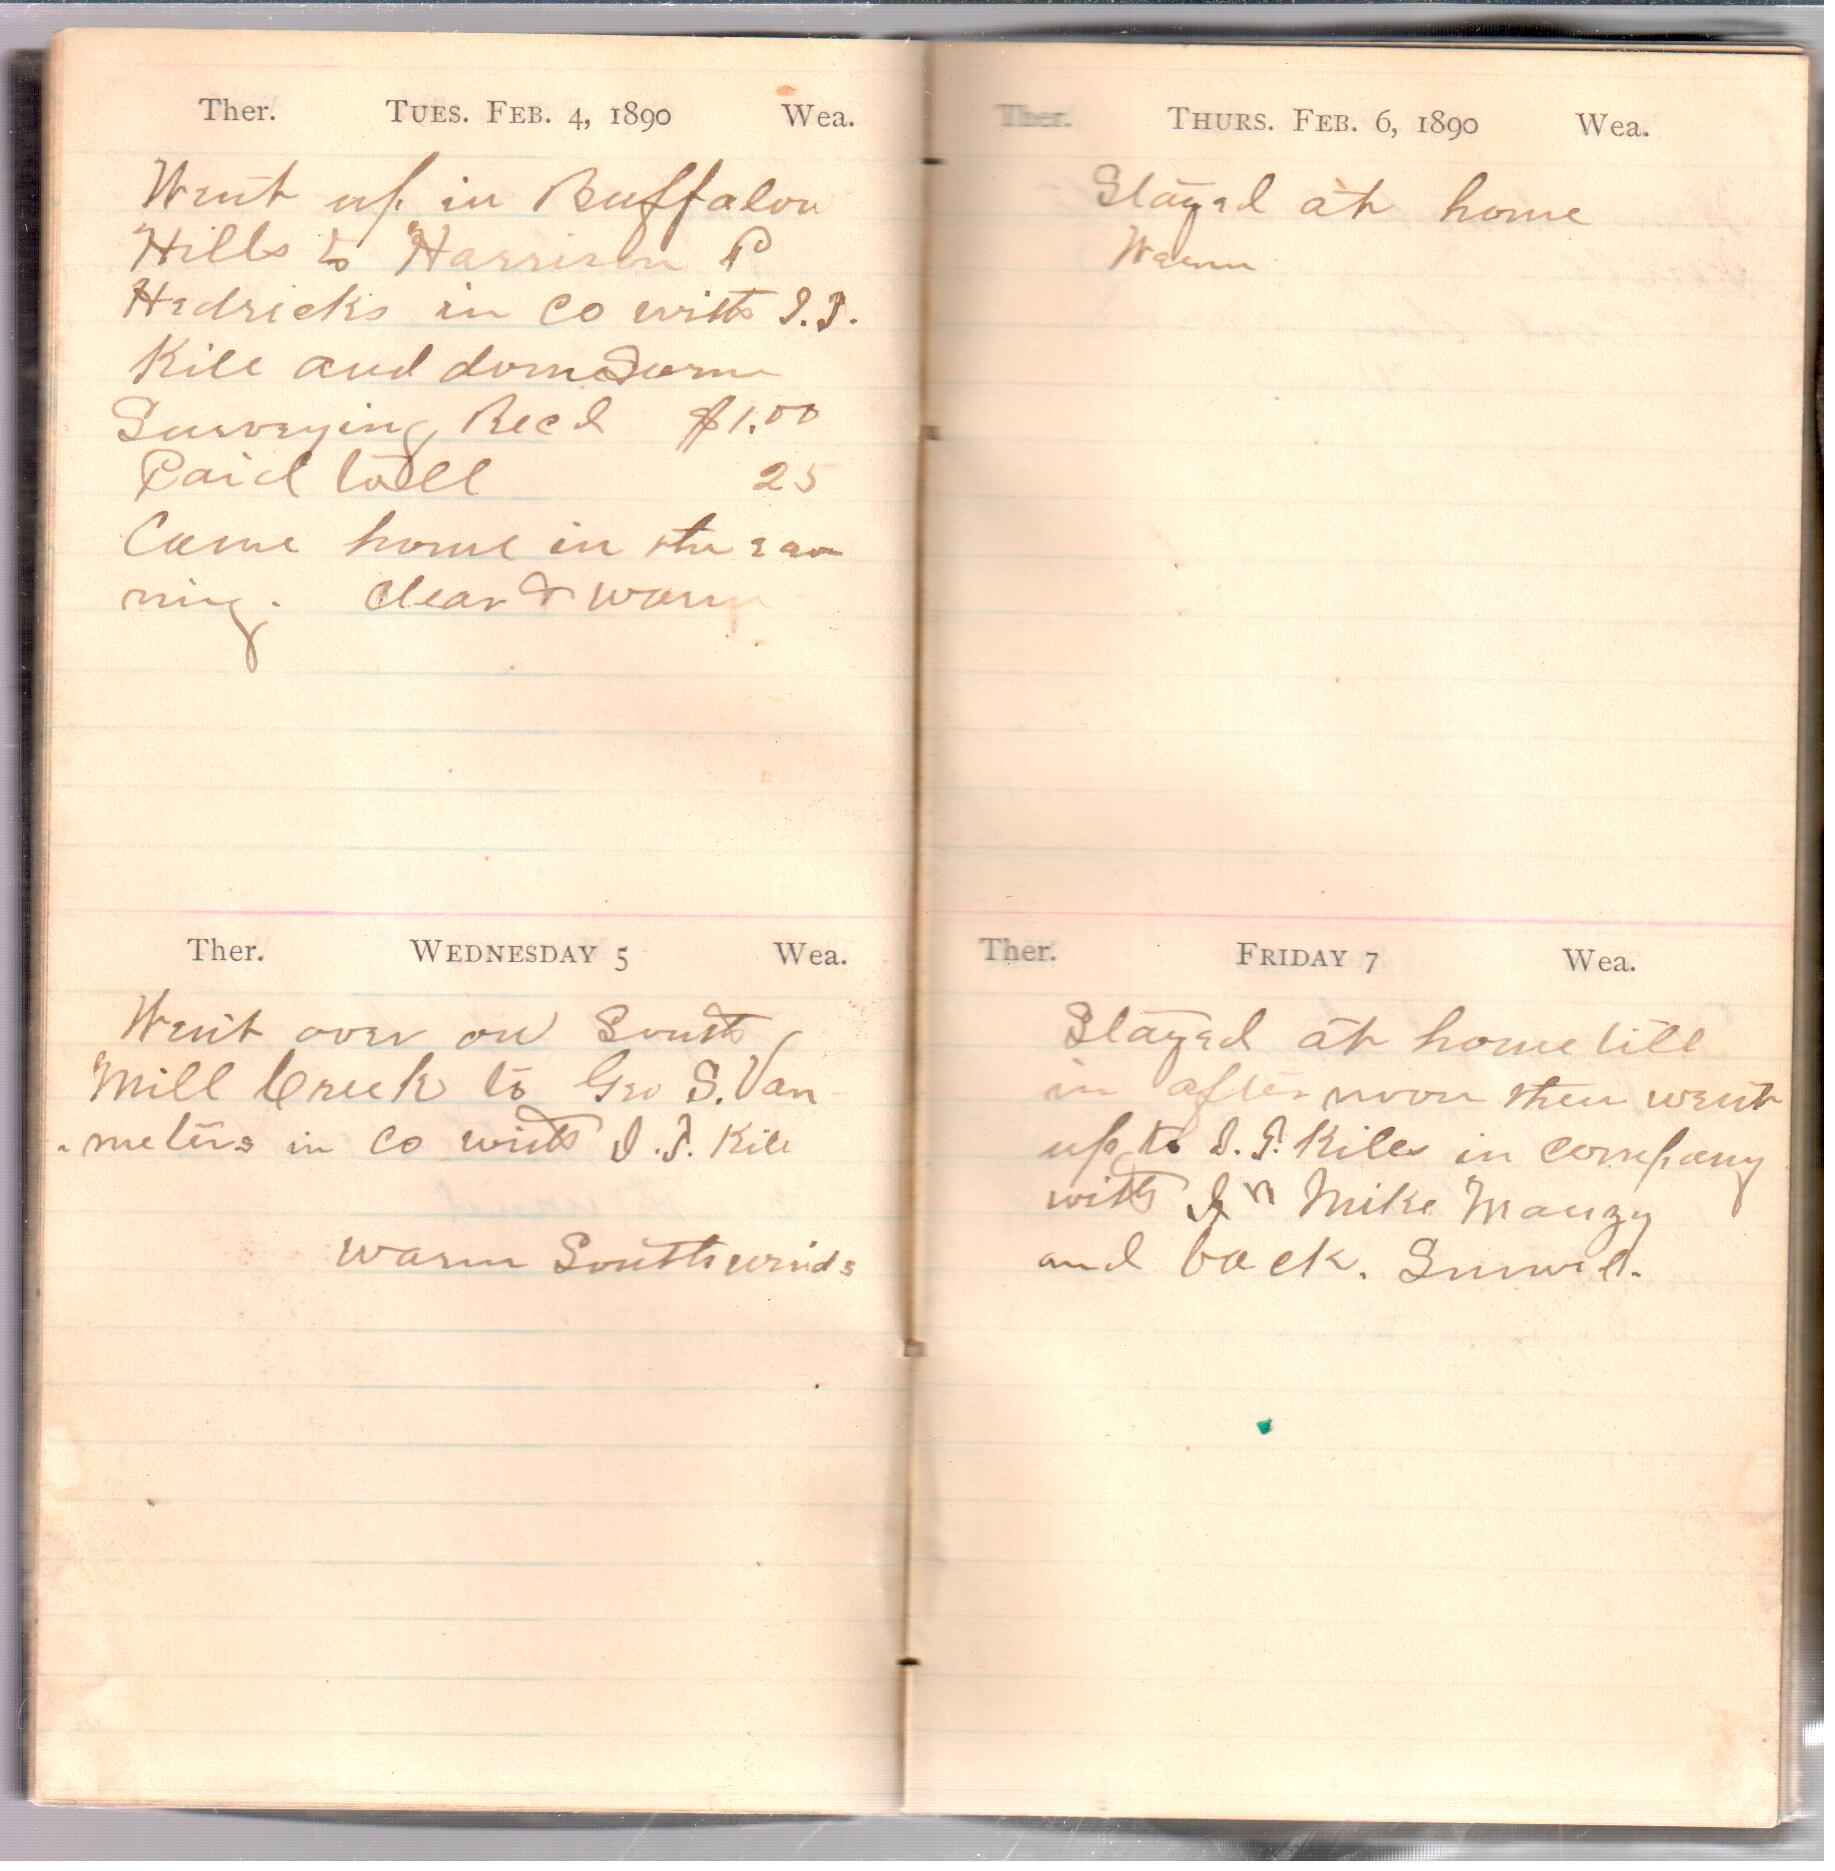 Ther. TUES. FEB. 4, 1890 Wea.
Went up in Buffalou
Hills to Harrison P
Hedricks in Co with I.J.
Kile and dom Some
Surveying Recd $1.00
Paid toll 25
Came home in the eav
ning. Clear & warm
Ther. WEDNESDAY 5 Wea.
Went over on South
Mill Creek to Geo S. Van
meters in Co with I.J. Kile
warm South winds
Ther. THURS. FEB. 6, 1890 Wea.
Stayed at home
Warm
Ther. FRIDAY 7 Wea.
Stayed at home till
in after noon then went
up to I.J. Kiles in company
with Mike Mauzy
and back. Snowed.